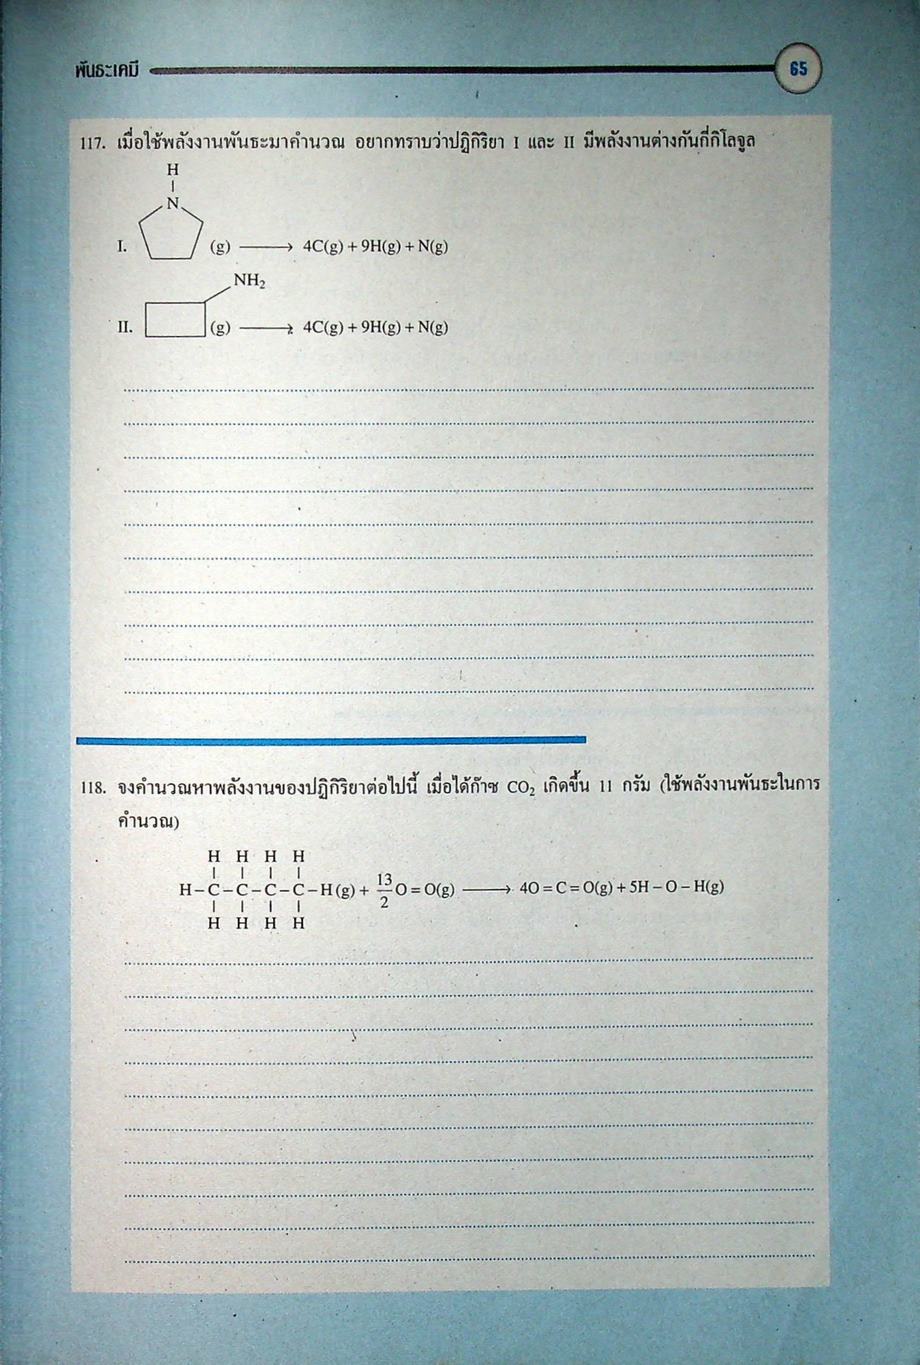 พันธะเคมี
65
117. เมื่อใช้พลังงานพันธะมาคำนวณ อยากทราบว่าปฏิกิริยา I และ II มีพลังงานต่างกันกี่กิโลจูล
H
N
I. (g) ⟶ 4C(g) + 9H(g) + N(g)
NH₂
II. (g) ⟶ 4C(g) + 9H(g) + N(g)
118. จงคำนวณหาพลังงานของปฏิกิริยาต่อไปนี้ เมื่อได้ก๊าซ CO₂ เกิดขึ้น 11 กรัม (ใช้พลังงานพันธะในการ
คำนวณ)
H H H H
H–C–C–C–C–H(g) + 13/2 O=O(g) ⟶ 4O=C=O(g) + 5H–O–H(g)
H H H H